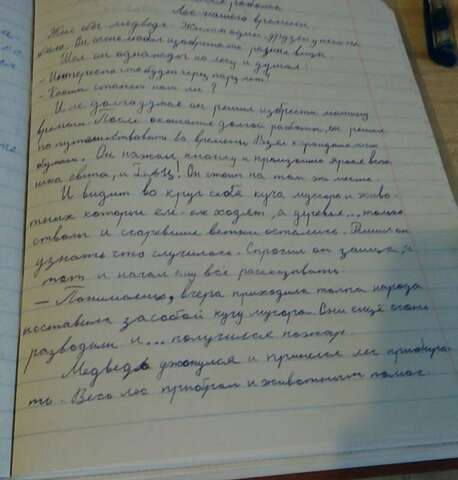 работа
Лес нашего времени
Жил был медведь. Жил он один, друзей у него не
было. Он очень любил изобретать разные вещи.
Шел он однажды по лесу и думал:
- Интересно что будет через пару лет?
- Каким станет наш лес?
И не долго думая он решил изобрести машину
времени. После окончания долгой работы, он решил
попутешествовать во времени. Взял с
Он нажал кнопку и произошло яркая вспы
шка света, и БАБЦ! Он стоит на том же месте.
И видит во круг себя куча мусора и живо
тных которые еле-еле ходят, а деревья... только
стволы и сгоревшие ветки остались. Решил он
узнать что случилось. Спросил он зайца, и
тот и начал ему всё рассказывать
- Понимаешь, вчера приходила толпа народа
поставила за собой кучу мусора. Они ещё огонь
разводили и... получился пожар.
Медведь ужаснулся и принялся лес прибира
ть. Весь лес прибрал и животным помог.